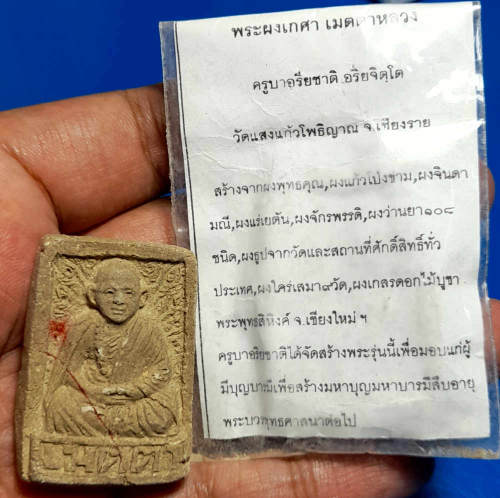 พระผงเกศา เมตตาหลวง
ครูบาอริยชาติ อริยจิตฺโต
วัดแสงแก้วโพธิญาณ จ.เชียงราย
สร้างจากผงพุทธคุณ,ผงแก้วโป่งขาม,ผงจินดา
มณี,ผงแร่เยตัน,ผงจักรพรรดิ,ผงว่านยา๑๐๘
ชนิด,ผงธูปจากวัดและสถานที่ศักดิ์สิทธิ์ทั่ว
ประเทศ,ผงใคร่เสมา๙วัด,ผงเกสรดอกไม้บูชา
พระพุทธสิหิงค์ จ.เชียงใหม่ ฯ
ครูบาอริยชาติได้จัดสร้างพระรุ่นนี้เพื่อมอบแก่ผู้
มีบุญบารมีเพื่อสร้างมหาบุญมหาบารมีสืบอายุ
พระบวรพุทธศาสนาต่อไป
เมตตา